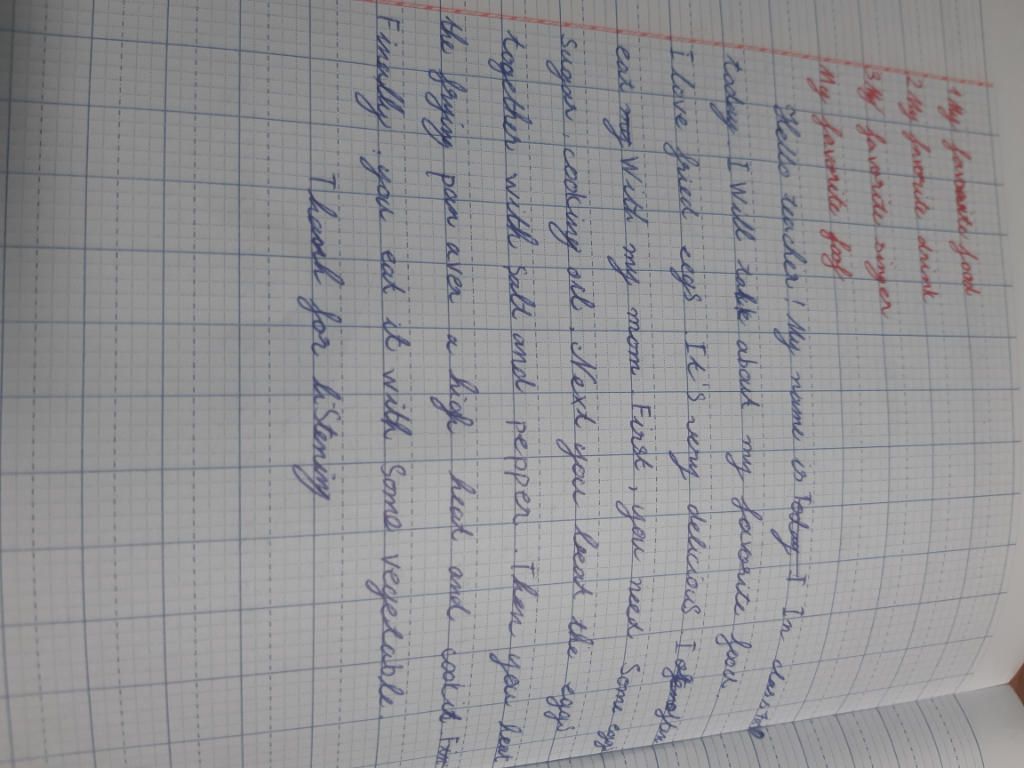 1 My favourite food
2 My favourite drink
3 My favorite singer
My favorite foof
Hello teacher! My name is Today I In
today I will talk about my favorite foou
I love fried eggs. It's very delicious I often
eat my With my mom First, you need Some eggs
Sugar, cooking oil. Next you beat the eggs
together with Salt and pepper. Then you heat
the frying pan over a high heat and
Finally, you eat it with Some vegetable.
Thank for liStening